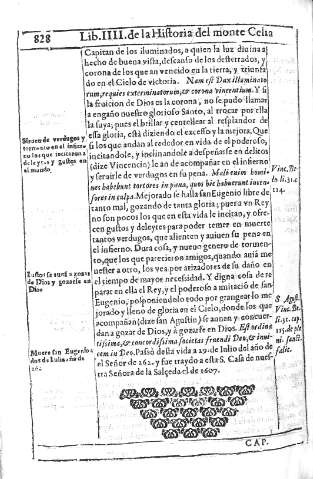 828
Lib. IIII. de la Historia del monte Celia
Capitan de los iluminados, a quien la luz diuina a
hecho de buena vista, descanso de los desterrados, y
corona de los que an vencido en la tierra, y triunfa
do en el Cielo de victoria. Nam est Dux illuminato
rum, requies exterminatorum, & corona vincentium. Y si
la fruicion de Dios es la corona, no se pudo llamar
a engaño nuestro glorioso Santo, al trocar por ella
la suya; pues el brillar y centellear al resplandor de
esta gloria, está diziendo el excesso y la mejora. Que
si los que andan al rededor en vida de el poderoso,
incitandole, y inclinandole a despeñarse en delitos
(dize Vincencio) le an de acompañar en el infierno
y serairle de verdugos en su pena.
tanto mal, gozando de tanta gloria; puera vn Rey
no son pocos los que en esta vida le incitan, y ofre-
cen gustos y deleytes para poder temer en muerte
tantos verdugos, que alienten y auiuen su pena en
el infierno. Dura cosa, y nueuo genero de tormen-
to, que los que parecieron amigos, quando auia me
nester a otro, los vea por atizadores de su daño en
el tiempo de mayor necessidad. Y digna cosa de re
parar en ella el Rey, y el poderoso a imitacion de san
Eugenio, posponiendolo todo por grangear lo me
jorado y lleno de gloria en el Cielo, donde los que
acompañan (dize san Agustin) se aunen y concuer-
dan a gozar de Dios, y a gozarse en Dios. Est ordina
tissima, & concordissima societas fruendi Deo, & inui
cem in Deo. Passò desta vida a 29. de Iulio del año de
el Señor de 262. y fue traydo a esta S. Casa de nues
tra Señora de la Salçeda el de 1607.
Siruen de verdugos y
tormento en el infier
no los que incitaron a
deleytes y gustos en
el mundo.
de Dios y gozarse en
Dios
Muere san Eugenio
a 29. de Iulio, año de
262
Vinc. Be.
li. li. 31. c
124.
S. Agust.
Vinc. Be.
li. 31. cap.
CAP.